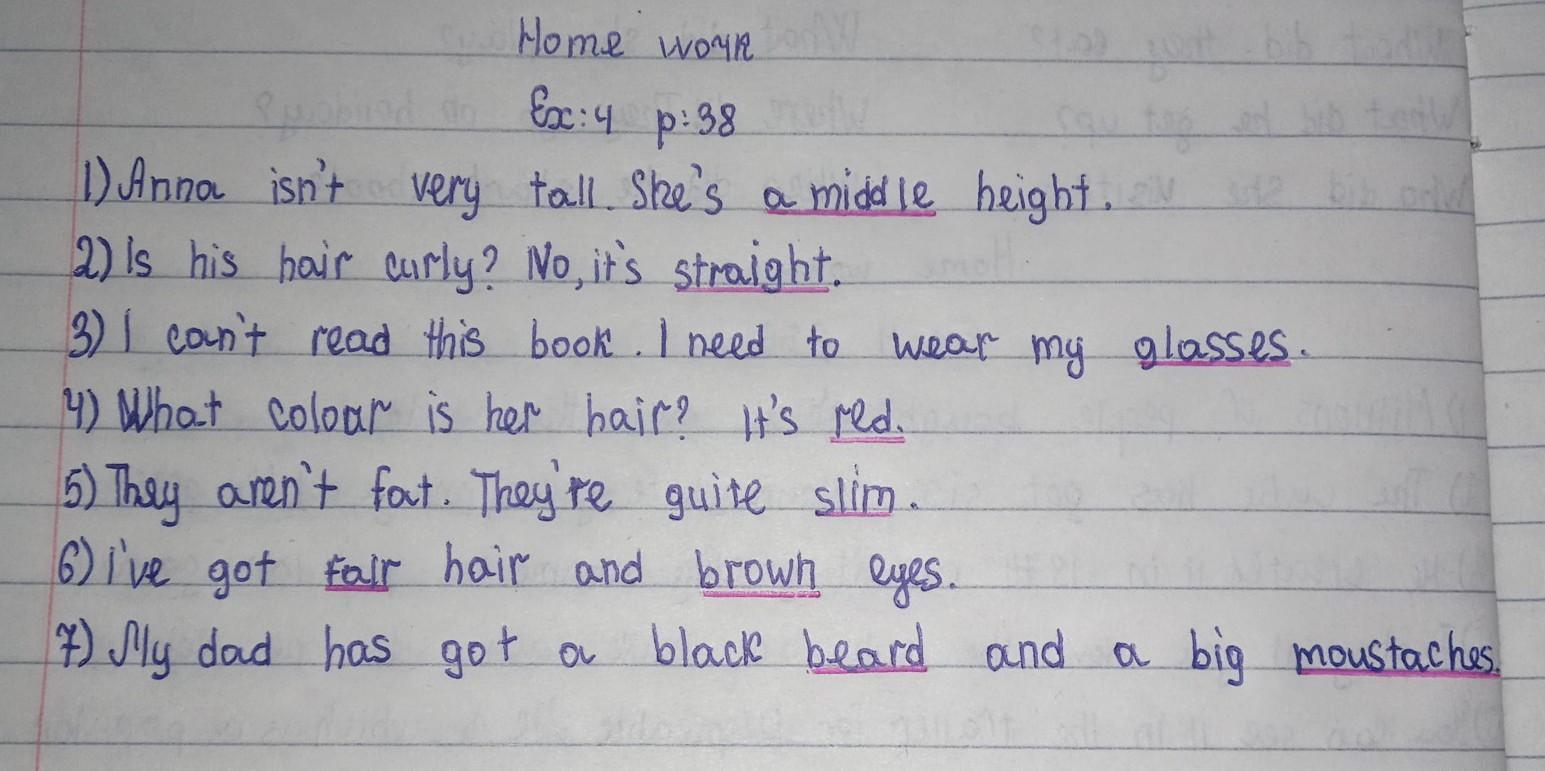 Home work
Ex:4 p:38
1) Anna isn't very tall. She's a middle height.
2) Is his hair curly? No, it's straight.
3) I can't read this book. I need to wear my glasses.
4) What colour is her hair? It's red.
5) They aren't fat. They're quite slim.
6) I've got fair hair and brown eyes.
7) My dad has got a black beard and a big moustaches.